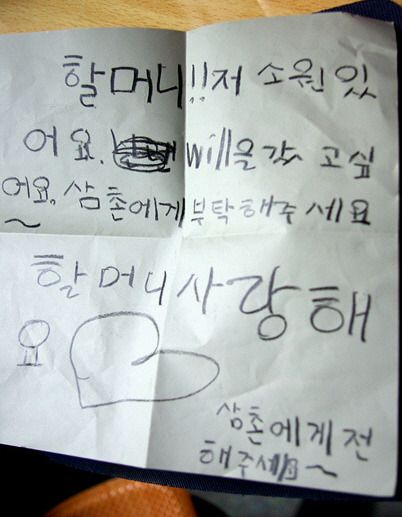 할머니!! 저 소원 있
어요. will을 갔 고싶
어요. 삼촌에게 부탁해주세요
~
할머니 사랑해
요
삼촌에게 전
해주세요~